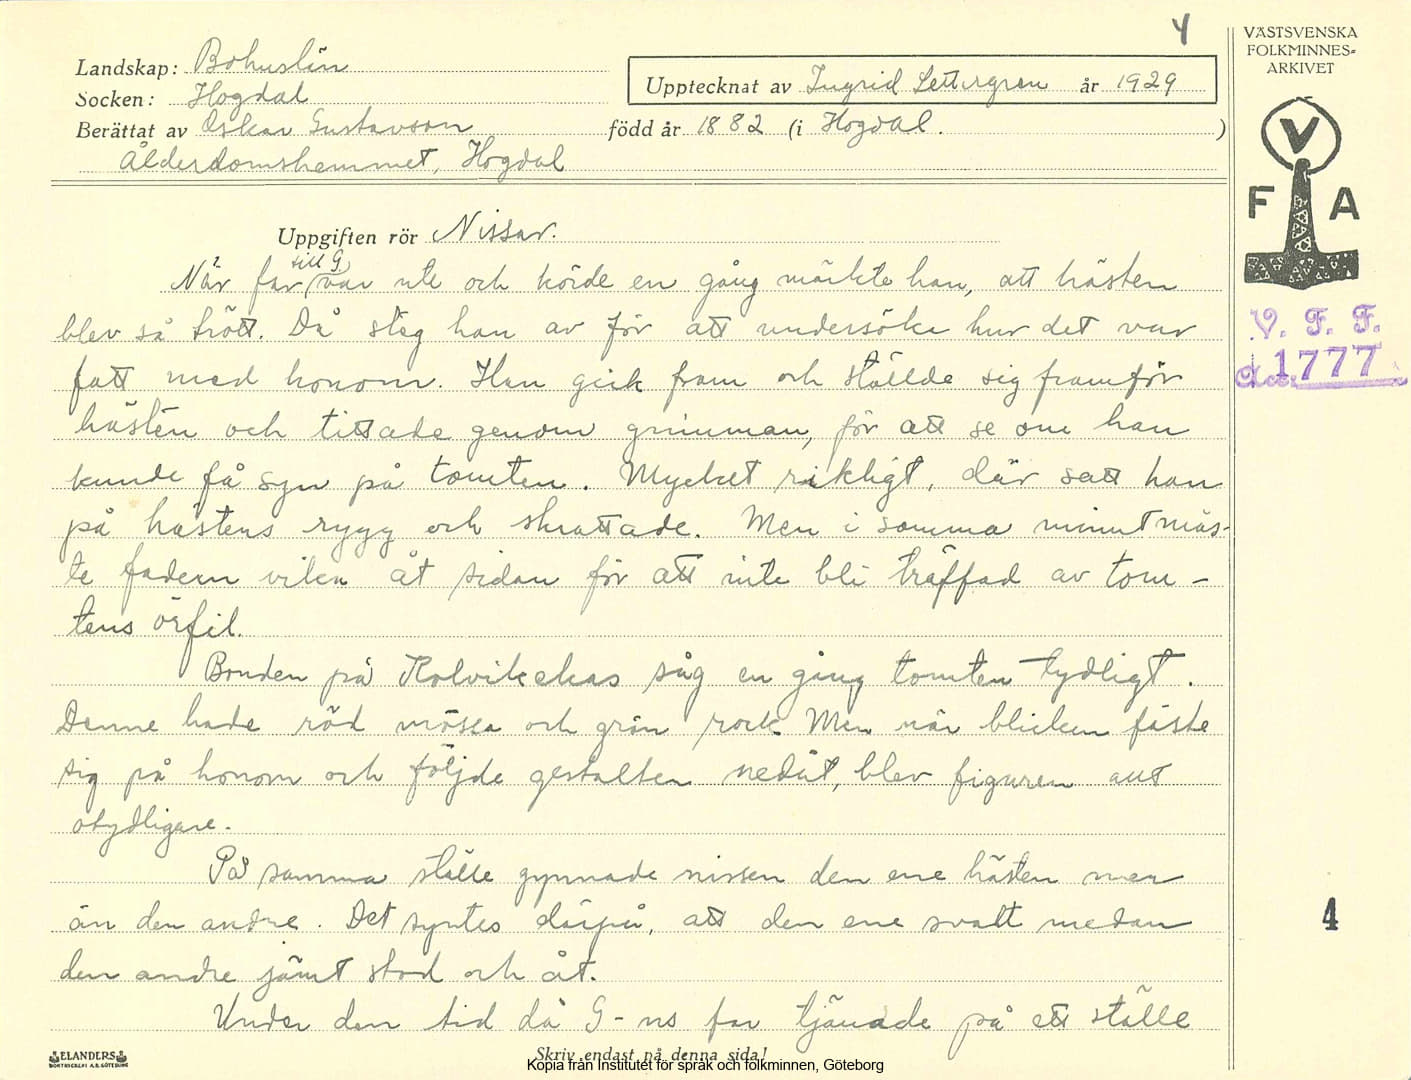 4
VÄSTSVENSKA
FOLKMINNES=
ARKIVET
Landskap: Bohuslän
Socken: Hogdal
Upptecknat av Ingrid Settergren år 1929
Berättat av Oskar Gustavson född år 1882 (i Hogdal. )
Ålderdomshemmet, Hogdal
V
F A
V. F. F.
Acc. 1777
Uppgiften rör Nissar.
När far till G var ute och körde en gång märkte han, att hästen
blev så trött. Då steg han av för att undersöka hur det var
fatt med honom. Han gick fram och ställde sig framför
hästen och tittade genom grimman, för att se om han
kunde få syn på tomten. Mycket riktigt, där satt han
på hästens rygg och skrattade. Men i samma minut mås-
te fadern vika åt sidan för att inte bli träffad av tom-
tens örfil.
Bonden på såg en gång tomten tydligt.
Denne hade röd mössa och grön rock. Men när blicken fäste
sig på honom och följde gestalten nedåt, blev figuren allt
otydligare.
På samma ställe gynnade nissen den ene hästen mer
än den andre. Det syntes därpå, att den ene svalt medan
den andre jämt stod och åt.
Under den tid då G-ns far tjänade på ett ställe
4
ELANDERS
BOKTRYCKERI A.B. GÖTEBORG
Skriv endast på denna sida!
Kopia från Institutet för språk och folkminnen, Göteborg